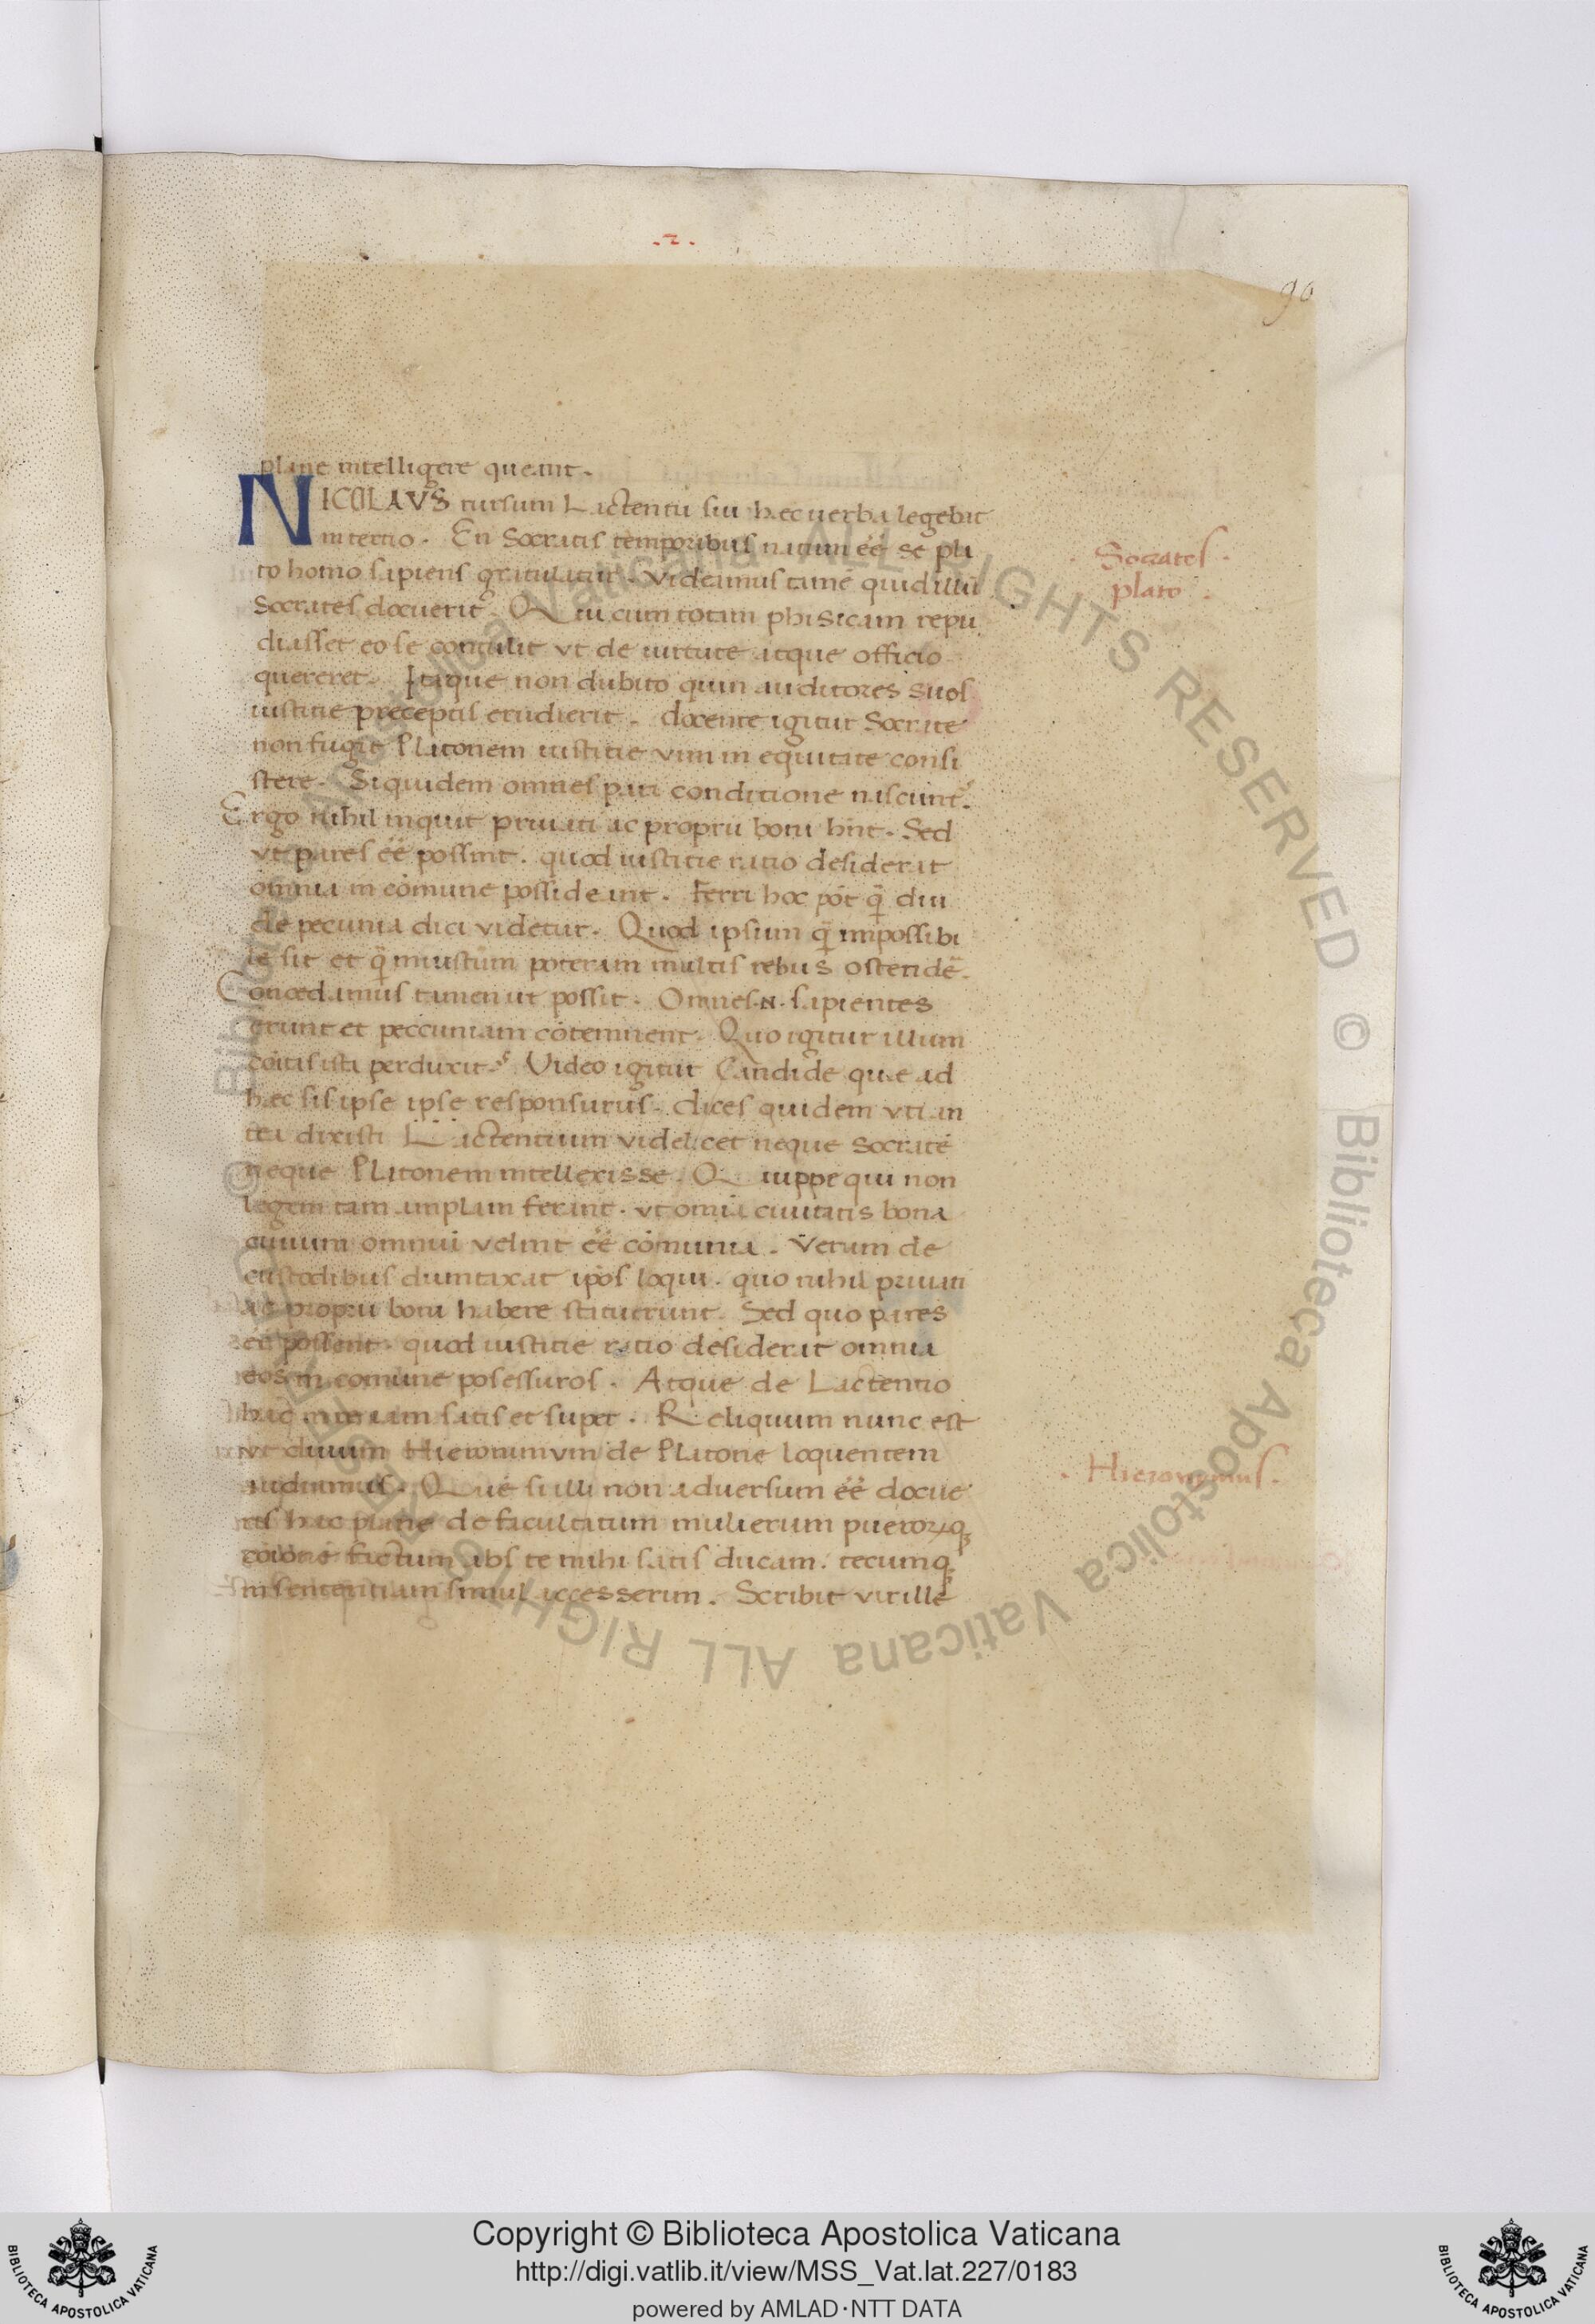 .2.
90
plane intelligere queant.
NICOLAVS rursum Lactentii sui hec uerba legebat
in tertio. En Socratis temporibus natum eē se pla
to homo sapiens gratulatur. videamus tamē quid illū
Socrates docuerit. Qui cum totam phisicam repu
diasset eo se contulit vt de uirtute atque officio
quereret. Itaque non dubito quin auditores suos
iustitie preceptis erudierit. docente igitur Socrate
non fugit Platonem iustitie vim in equitate consi
stere. Siquidem omnes pari conditione nascunt᷑.
Ergo nihil inquit priuati ac proprii boni hn̄t. Sed
vt pares eē possint. quod iustitie ratio desiderat
omnia in cōmune possideant. Ferri hoc pōt q̄ diu
de pecunia dici videtur. Quod ipsum q̄ impossibi
le sit et q̄ iniustum poteram multis rebus ostendē.
Concedamus tamen ut possit. Omnes .n. sapientes
erunt et peccuniam cōtemnent. Quo igitur illum
cōitas ista perduxit? Video igitur Candide que ad
hec sis ipse ipse responsurus. dices quidem vti an
tea dixisti Lactentium videlicet neque Socratē
neque Platonem intellexisse. Quippe qui non
legem tam amplam ferant. vt omīa ciuitatis bona
ciuium omniū velint eē cōmunia. Verum de
custodibus dumtaxat ip̄os loqui. quo nihil priuati
ac proprii boni habere statuerunt. Sed quo pares
eē possent. quod iustitie ratio desiderat omnia
eos in comune posessuros. Atque de Lactentio
hac iam satis et super. Reliquum nunc est
vt diuum Hieronimvm de Platone loquentem
audiamus. Quē si illi non aduersum eē docue
ris hac plane de facultatum mulierum pueroꝝqꝫ
cōiōne factum abs te mihi satis ducam. tecumqꝫ
in sententiam simul accesserim. Scribit vir ille
Socrates.
plato.
. Hieronymus.
Copyright © Biblioteca Apostolica Vaticana
http://digi.vatlib.it/view/MSS_Vat.lat.227/0183
powered by AMLAD·NTT DATA
BIBLIOTECA APOSTOLICA VATICANA
BIBLIOTECA APOSTOLICA VATICANA
© Biblioteca Apostolica Vaticana ALL RIGHTS RESERVED
© Biblioteca Apostolica Vaticana ALL RIGHTS RESERVED